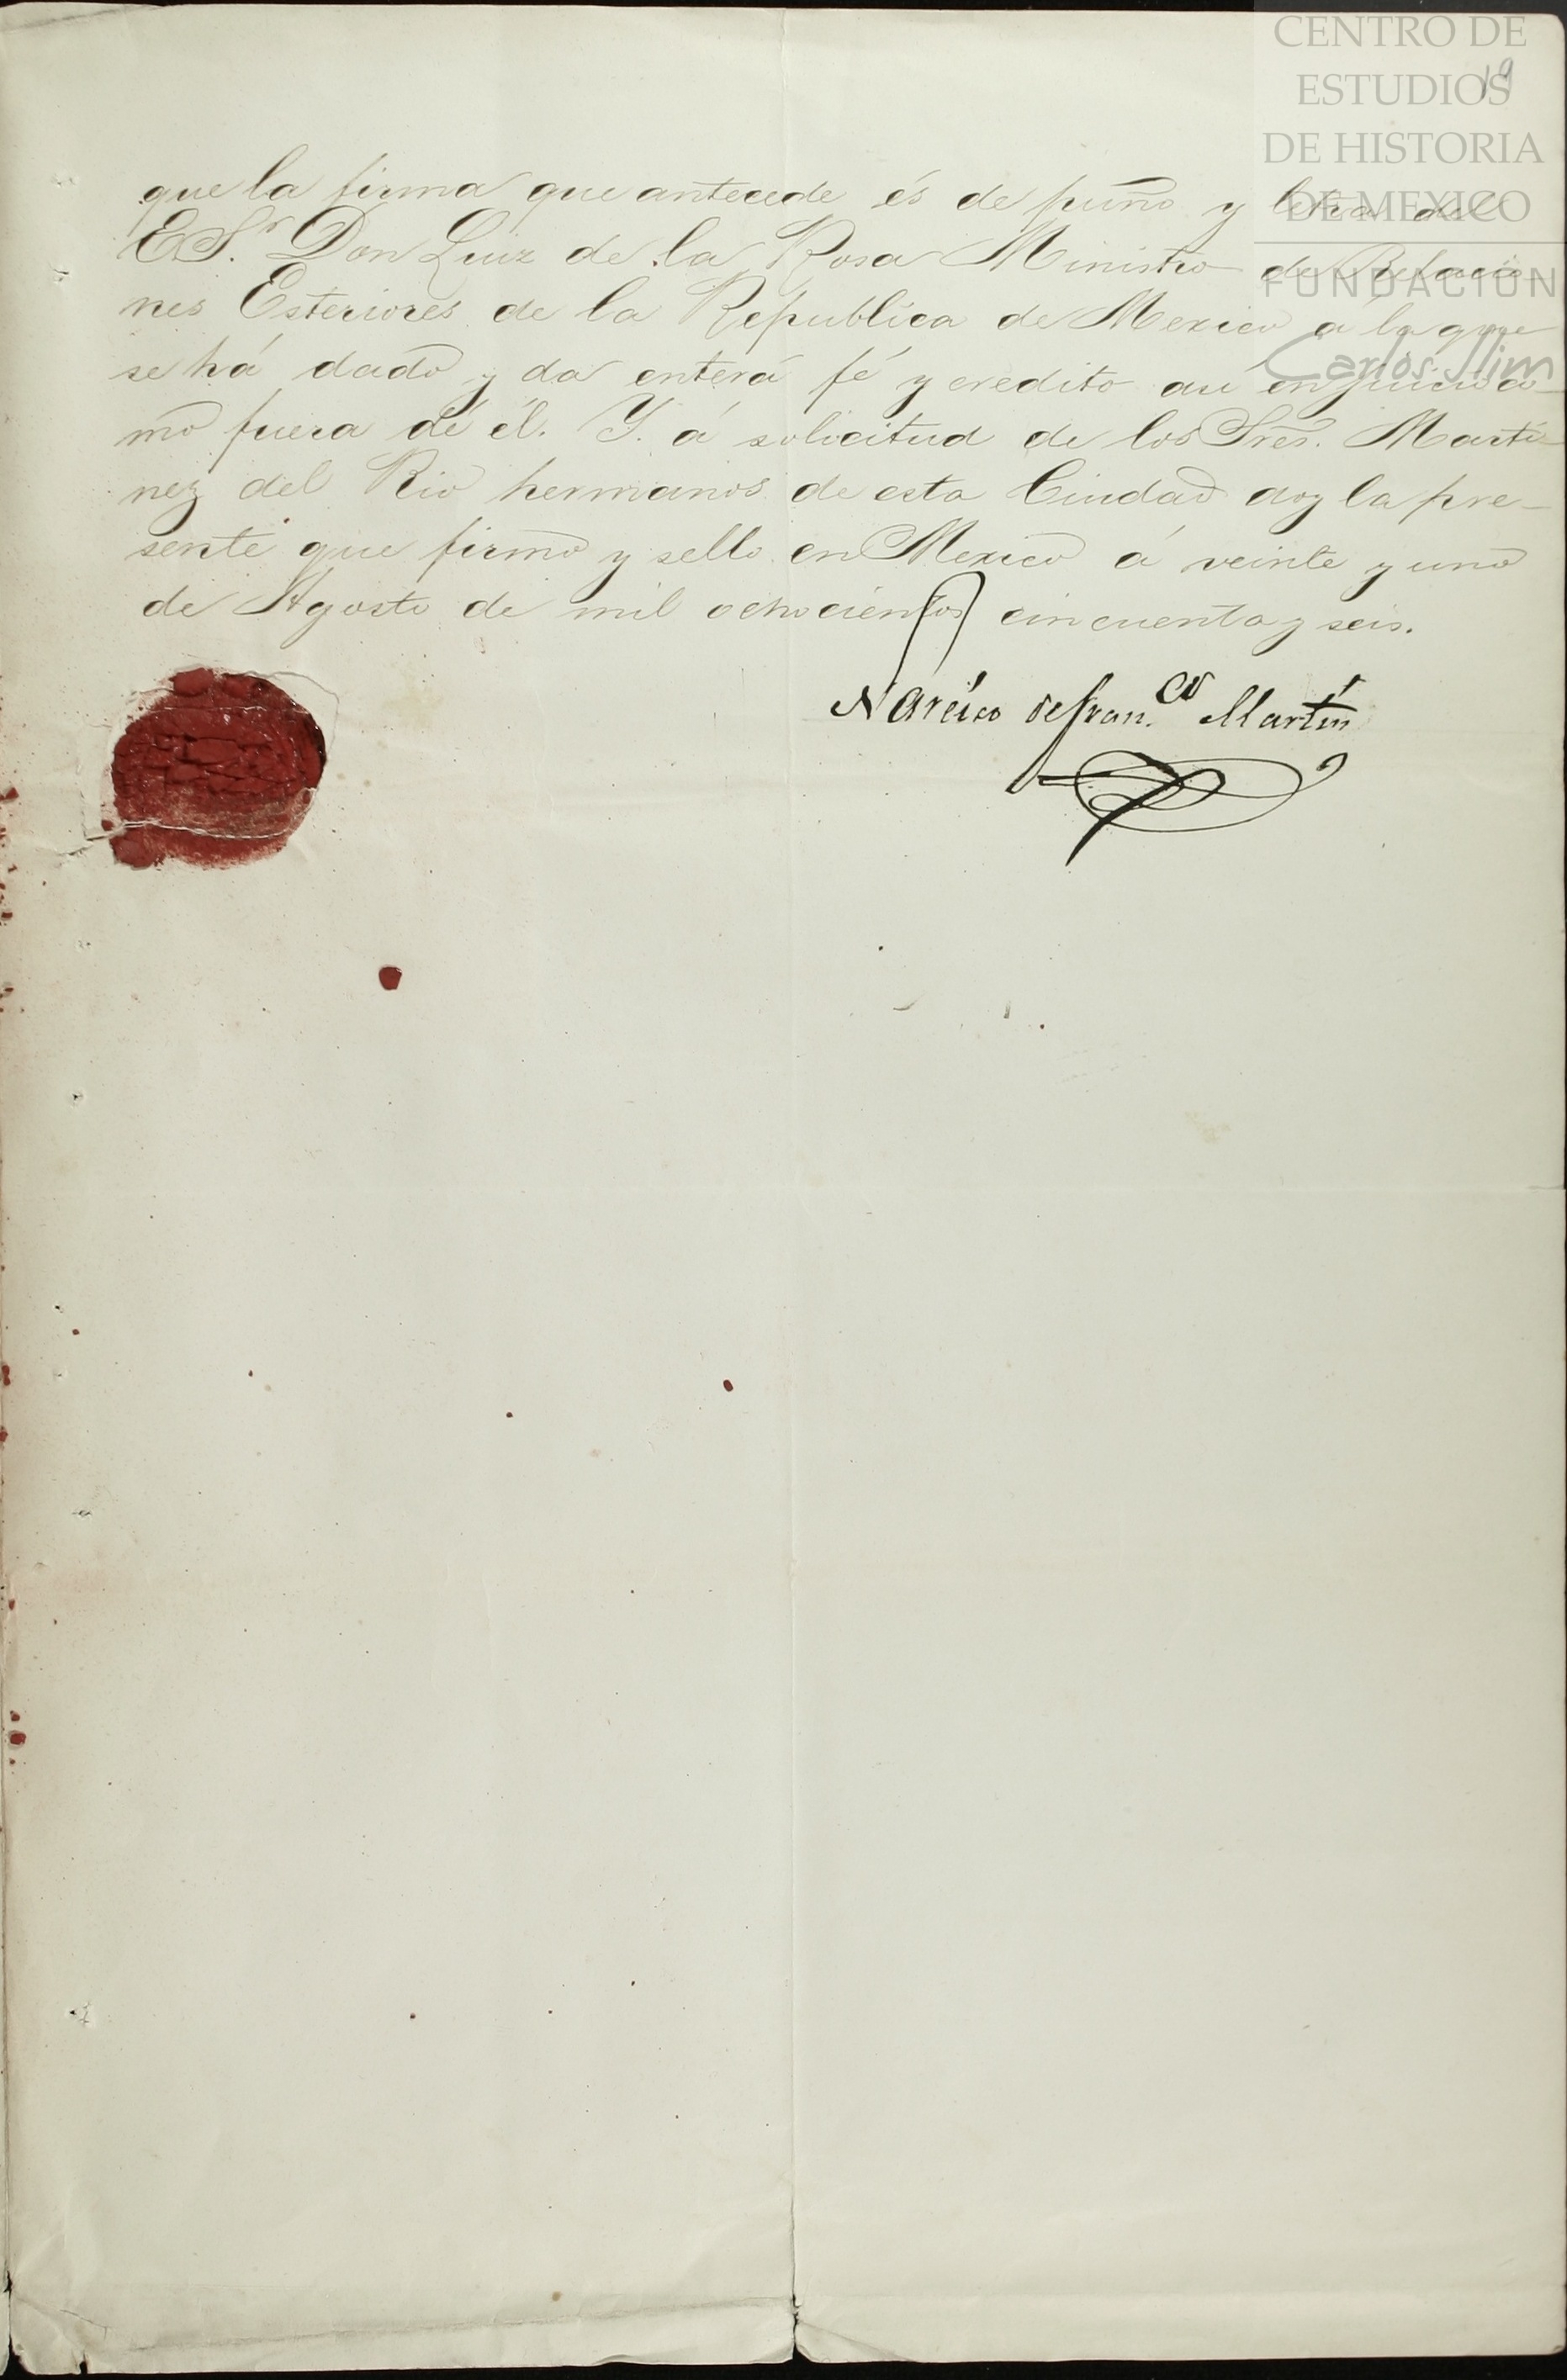 CENTRO DE
ESTUDIOS
DE HISTORIA
DE MEXICO
FUNDACIÓN
Carlos Slim
19
que la firma que antecede és de puño y letra del
E.S.r Don Luiz de la Rosa Ministro de Relacio-
nes Esteriores de la Republica de Mexico a la que
se há dado y da entera fé y credito asi en juicio co-
mo fuera de él. Y. á solicitud de los Sres. Marti-
nez del Rio hermanos de esta Ciudad doy la pre-
sente que firmo y sello en Mexico á veinte y uno
de Agosto de mil ochocientos cincuenta y seis.
Narciso de Fran.co Martin